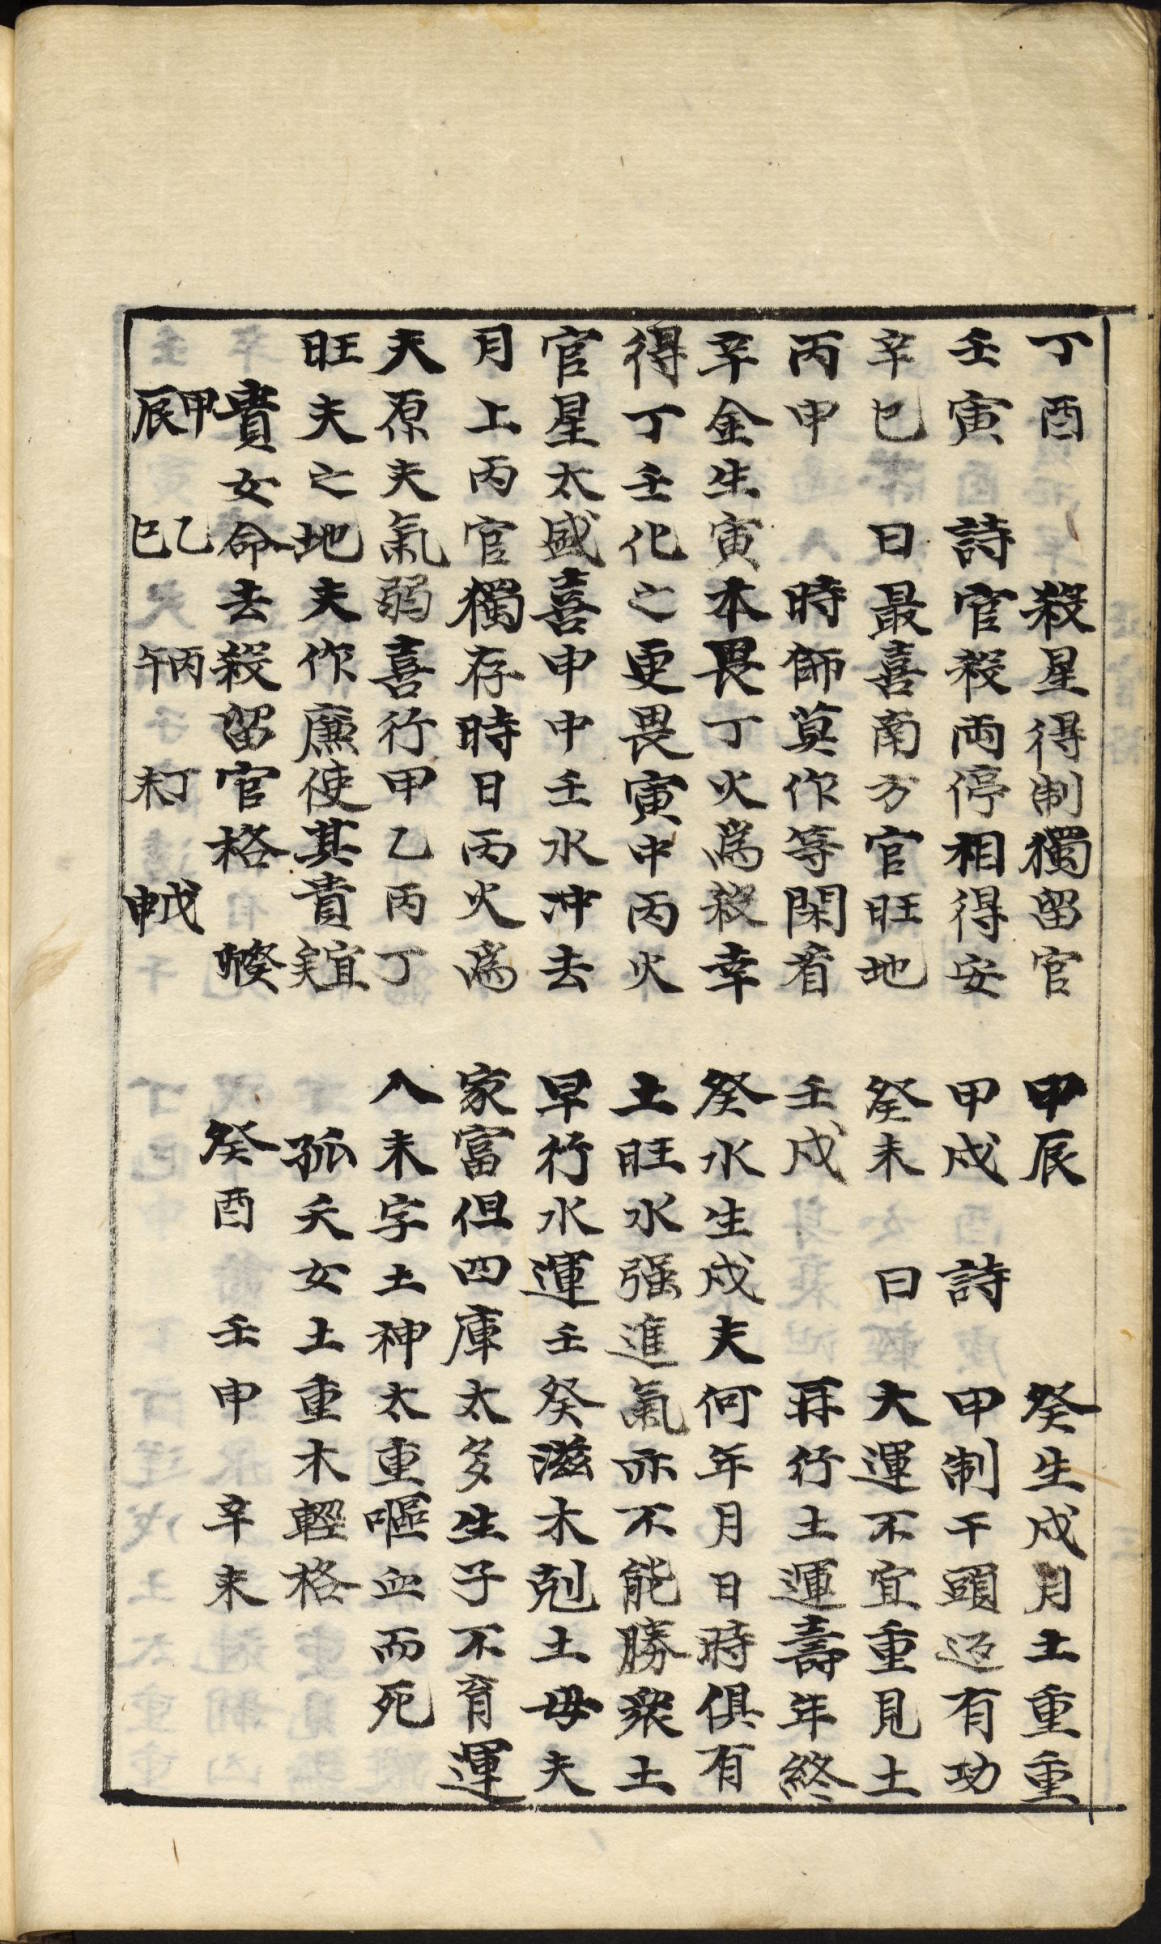 丁酉　殺星得制獨留官
壬寅　詩官殺両停相得安
辛巳　曰最喜南方官旺地
丙申　時師莫作等閑看
辛金生寅本畏丁火爲殺幸
得丁壬化之更畏寅中丙火
官星太盛喜申中壬水冲去
月上丙官獨存時日丙火爲
夫原夫氣弱喜行甲乙丙丁
旺夫之地夫作廉使其貴
貴女命去殺留官格　癸卯
甲辰　乙巳　丙午　丁未　戊申
甲辰　癸生戌月土重重
甲戌　詩　甲制干頭有功
癸未　曰　大運不宜重見土
壬戌　再行土運壽年終
癸水生戌夫何年月日時俱有
土旺水强進氣亦不能勝衆土
早行水運壬癸滋木剋土母夫
家富但四庫太多生子不育運
入未字土神太重嘔血而死
孤夭女土重木輕格
癸酉　壬申　辛未